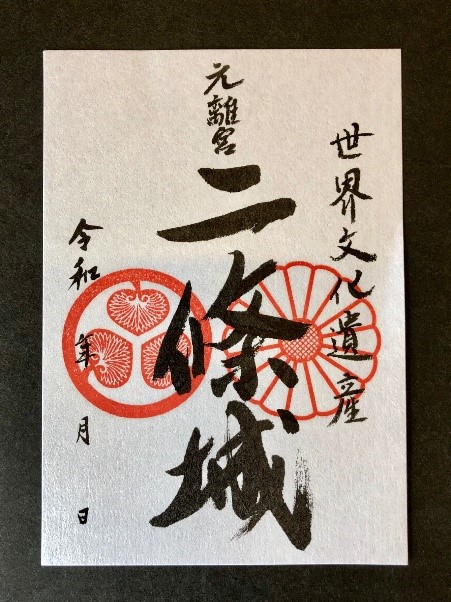 世界文化遺産
元離宮
二條城
令和 年 月 日